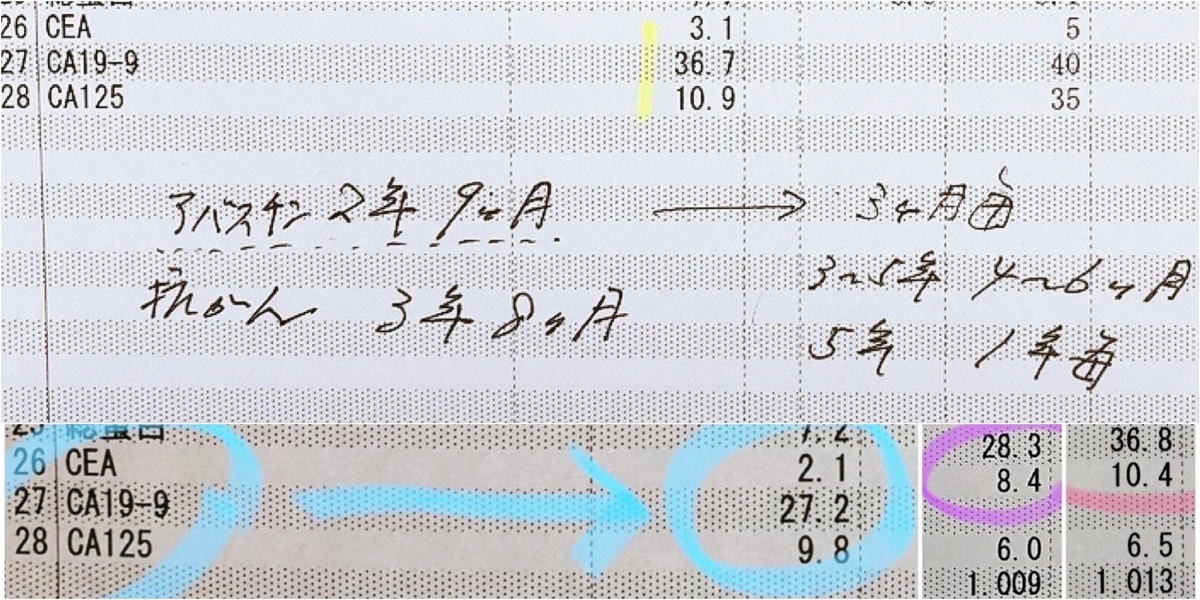 26 CEA 3.1 5
27 CA19-9 36.7 40
28 CA125 10.9 35
アバスチン 2年9ヶ月 → 3ヶ月毎
3~5年 4~6ヶ月
抗がん 3年8ヶ月
5年 1年毎
25 総蛋白 7.2
26 CEA 2.1
27 CA19-9 27.2
28 CA125 9.8
28.3
8.4
6.0
1.009
36.8
10.4
6.5
1.013